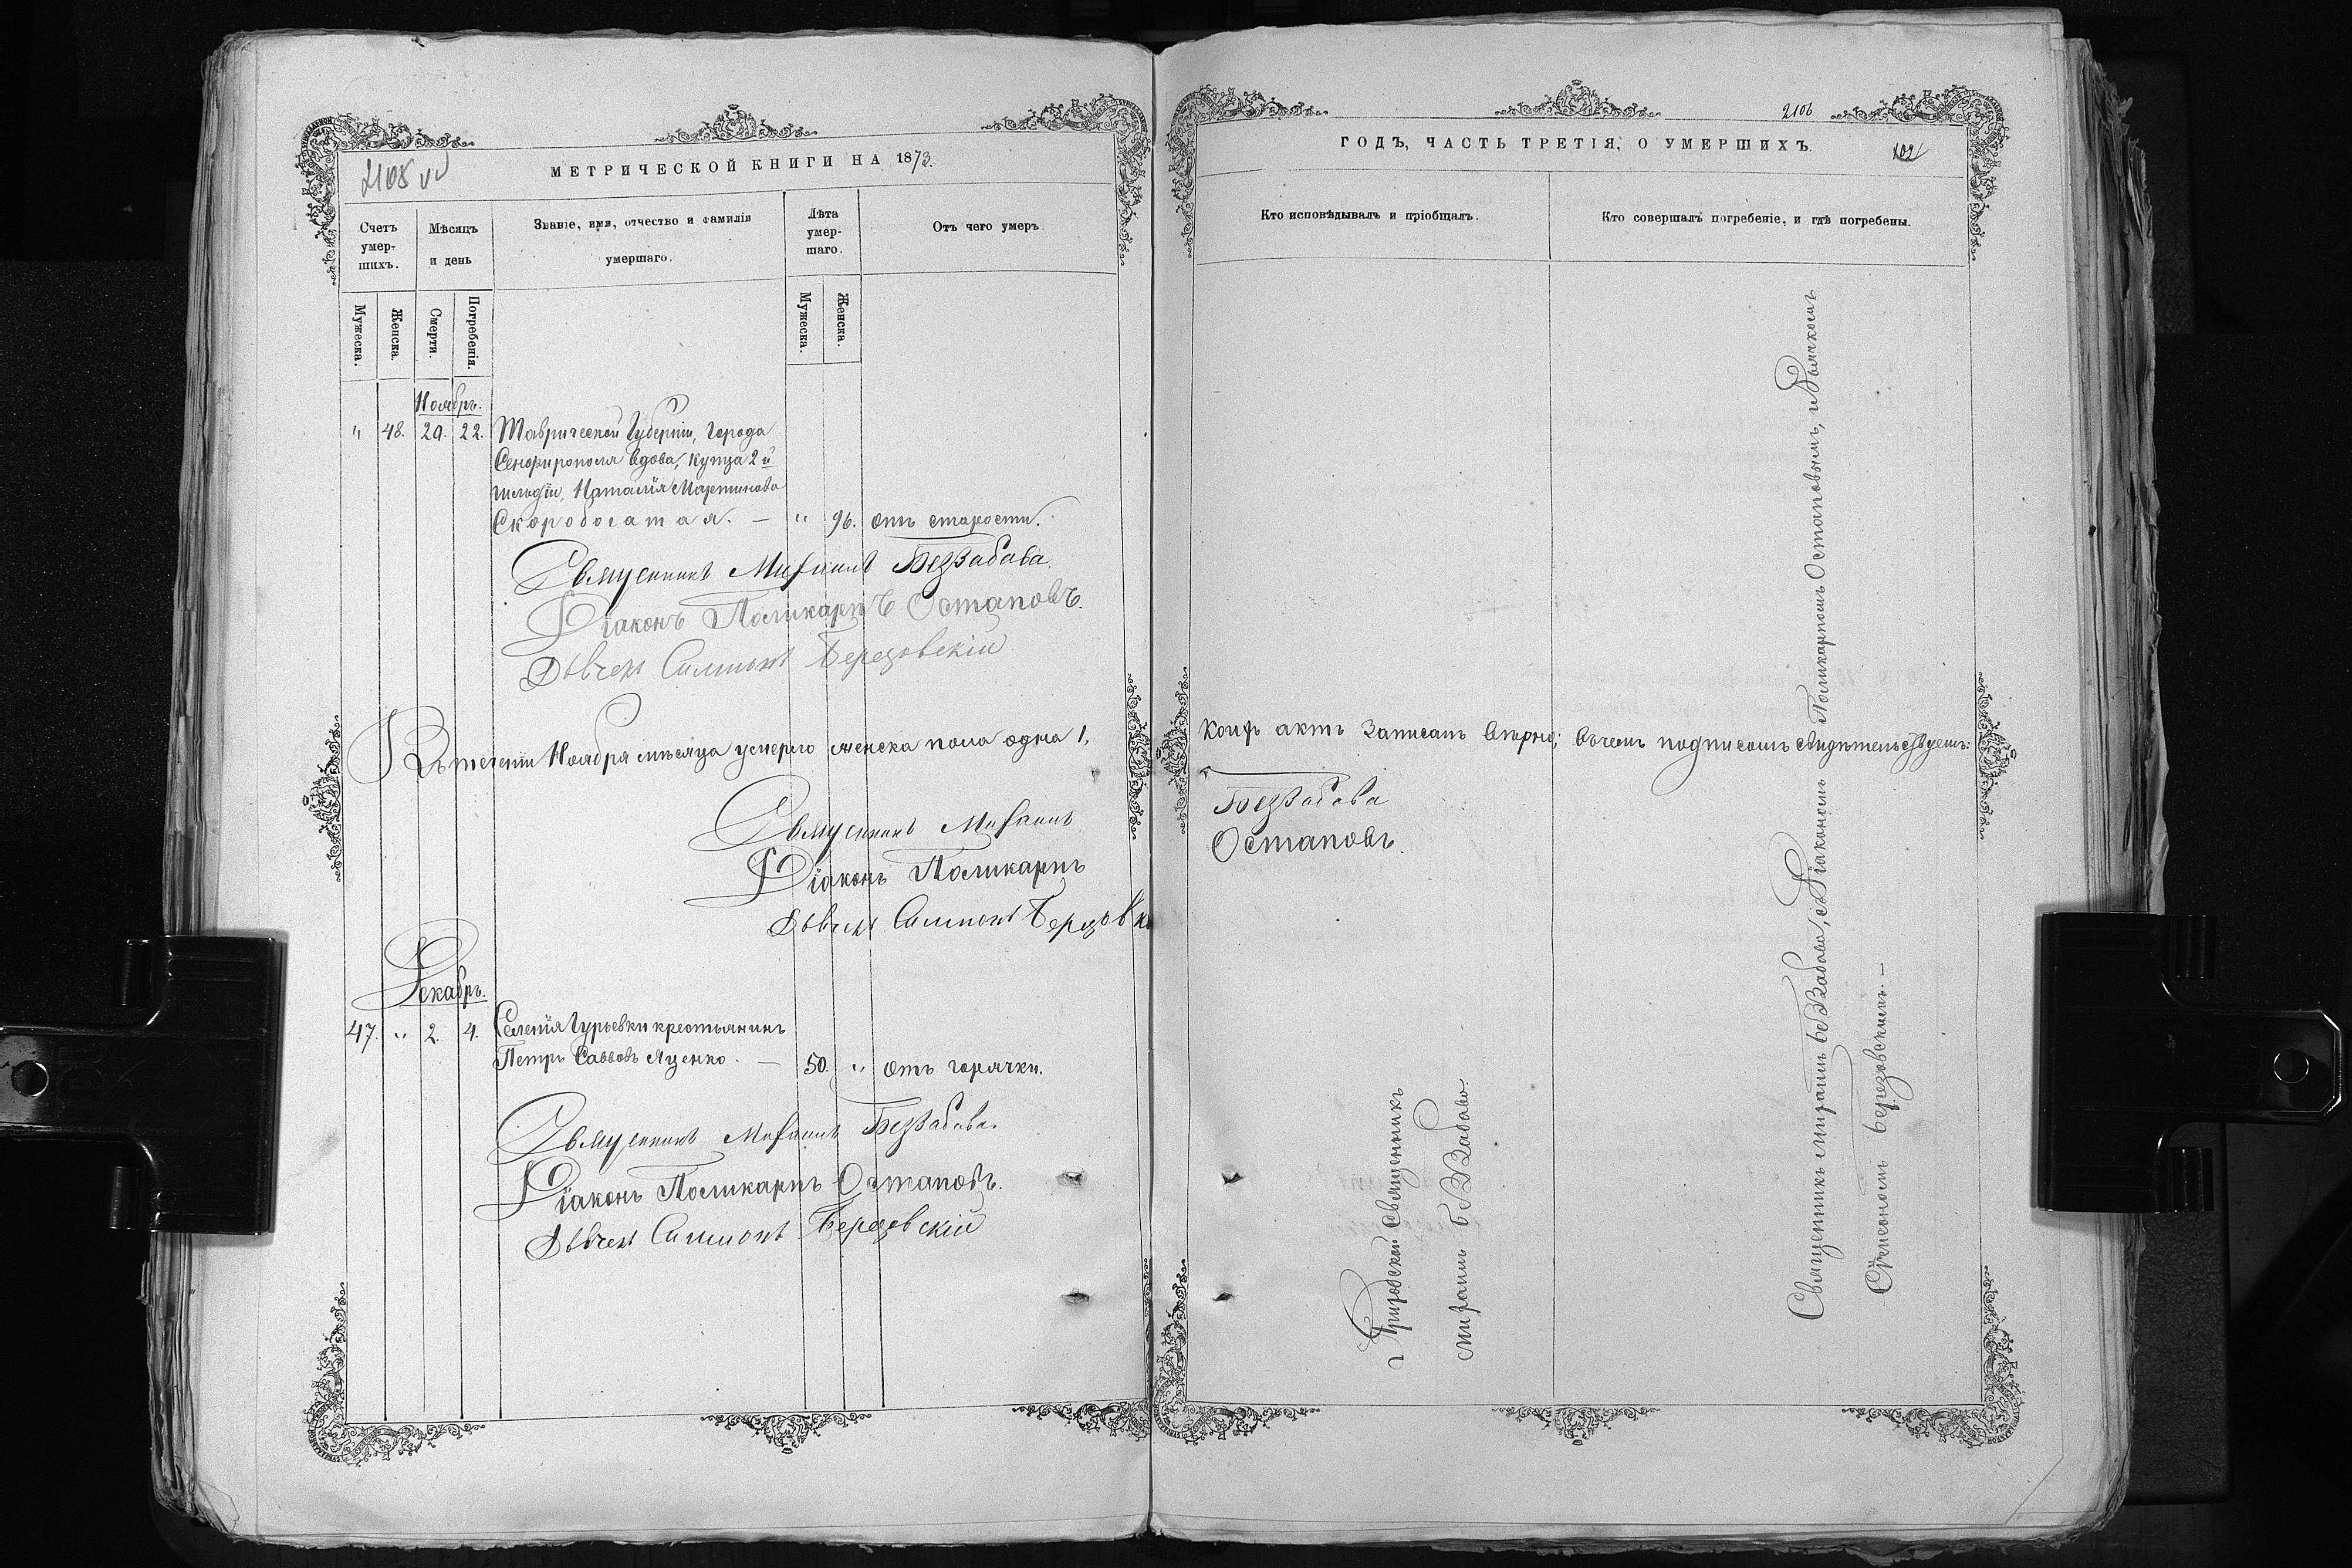 2105
МЕТРИЧЕСКОЙ КНИГИ НА 1873.
Счетъ умер-шихъ.
Мѣсяцъ и день
Званіе, имя, отчество и фамилія умершаго.
Лѣта умер-шаго.
Отъ чего умеръ.
Мужеска.
Женска.
Смерти.
Погребенія.
Мужеска.
Женска.
Ноябрь.
" 48. 20. 22. Таврической Губерніи, города
Семфирополя вдова, купца 2й
гильдіи, Наталія Мартинова
Скоробогатая. — " 96. отъ старости.
Священникъ Михаилъ Беззабава
Діаконъ Поликарпъ Остаповъ.
Дьячекъ Симионъ Березовскій
Въ теченіи Ноября мѣсяца умерло женска пола одна 1,
Священникъ Михаилъ
Діаконъ Поликарпъ
Дьячекъ Симионъ Березовск
Декабрь.
47. " 2. 4. Селенія Гурьевки крестьянинъ
Петръ Саввовъ Яценко. —  50. " отъ горячки.
Священникъ Михаилъ Беззабава.
Діаконъ Поликарпъ Остаповъ.
Дьячекъ Симионъ Березовскій
2106
ГОДЪ, ЧАСТЬ ТРЕТІЯ, О УМЕРШИХЪ.
Кто исповѣдывалъ и пріобщалъ.
Кто совершалъ погребеніе, и гдѣ погребены.
актъ записанъ вѣрно; въ чемъ подписомъ свидѣтельствуемъ:
Беззабава
Остаповъ.
Приходскій Священникъ
Михаилъ Беззабава.
Священникъ Михаилъ Беззабава, съ Діакономъ Поликарпомъ Остаповымъ, и Дьячкомъ
Сѵмеономъ Березовскимъ. —